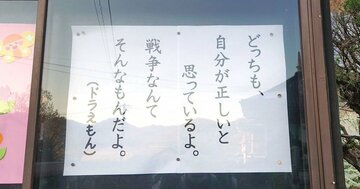 どっちも、
自分が正しいと
思っているよ。
戦争なんて
そんなもんだよ。
（ドラえもん）